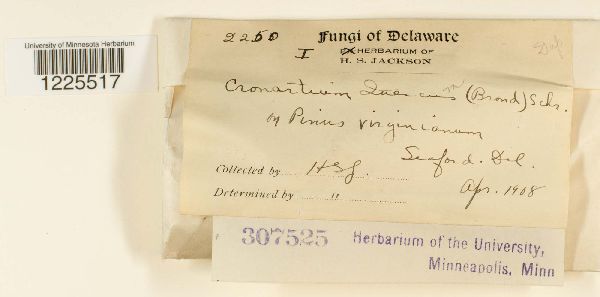 University of Minnesota Herbarium
1225517
2250
Fungi of Delaware
I
EX HERBARIUM OF
H. S. JACKSON
Cronartium Quercus (Brond) Schr.
on Pinus virginianum
Seaford. Del.
Collected by HSJ.
Apr. 1908
Determined by "
307525 Herbarium of the University,
Minneapolis, Minn